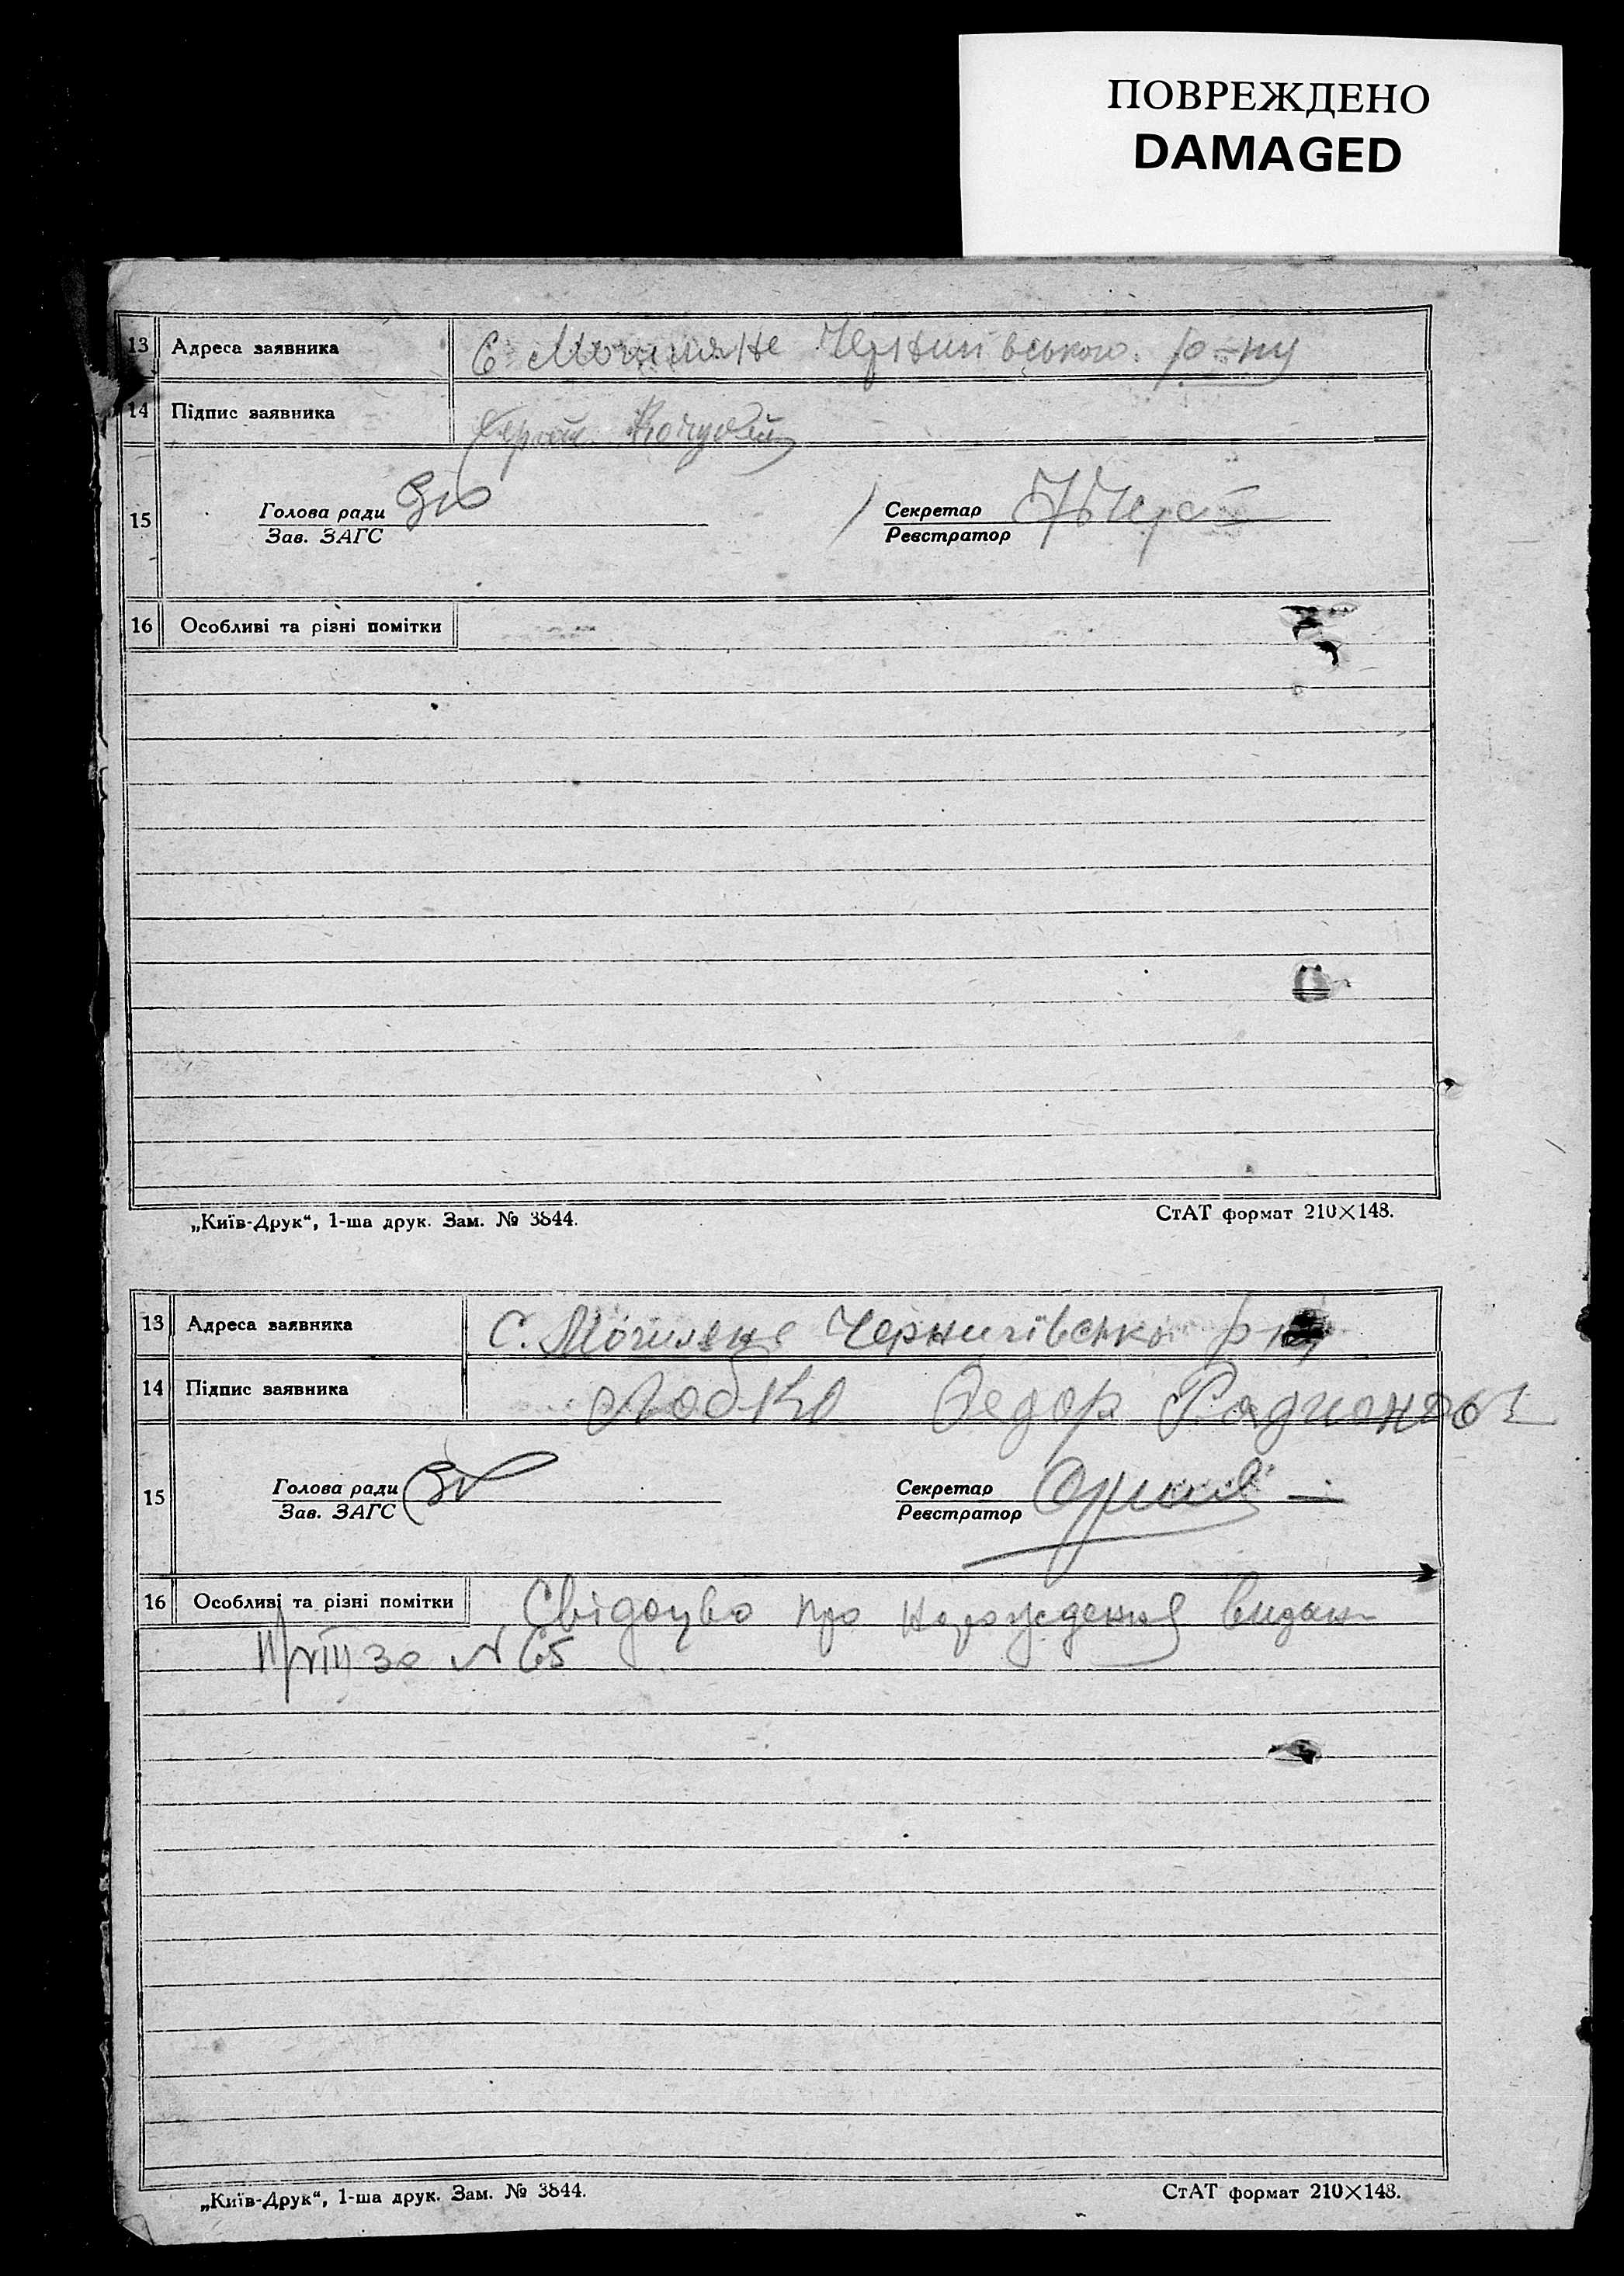 ПОВРЕЖДЕНО
DAMAGED
13 Адреса заявника С. Могиляне Чернигівського р-ну
14 Підпис заявника Сергей
15 Голова ради
Зав. ЗАГС
Секретар
Реєстратор
16 Особливі та різні помітки
„Київ-Друк“, 1-ша друк. Зам. № 3844.
СтАТ формат 210×148.
13 Адреса заявника С. Могиляне Чернигівсько р
14 Підпис заявника Лобко Федор Радионов
15 Голова ради
Зав. ЗАГС
Секретар
Реєстратор
16 Особливі та різні помітки Свідоцво про народження видан
№ 65
„Київ-Друк“, 1-ша друк. Зам. № 3844.
СтАТ формат 210×148.